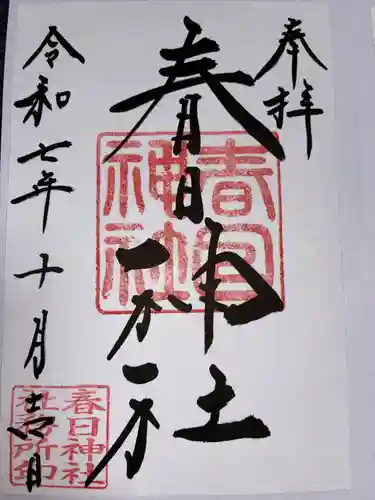 奉拝
春日神社
令和七年十月吉日
春日神社
春日神社
社務所印